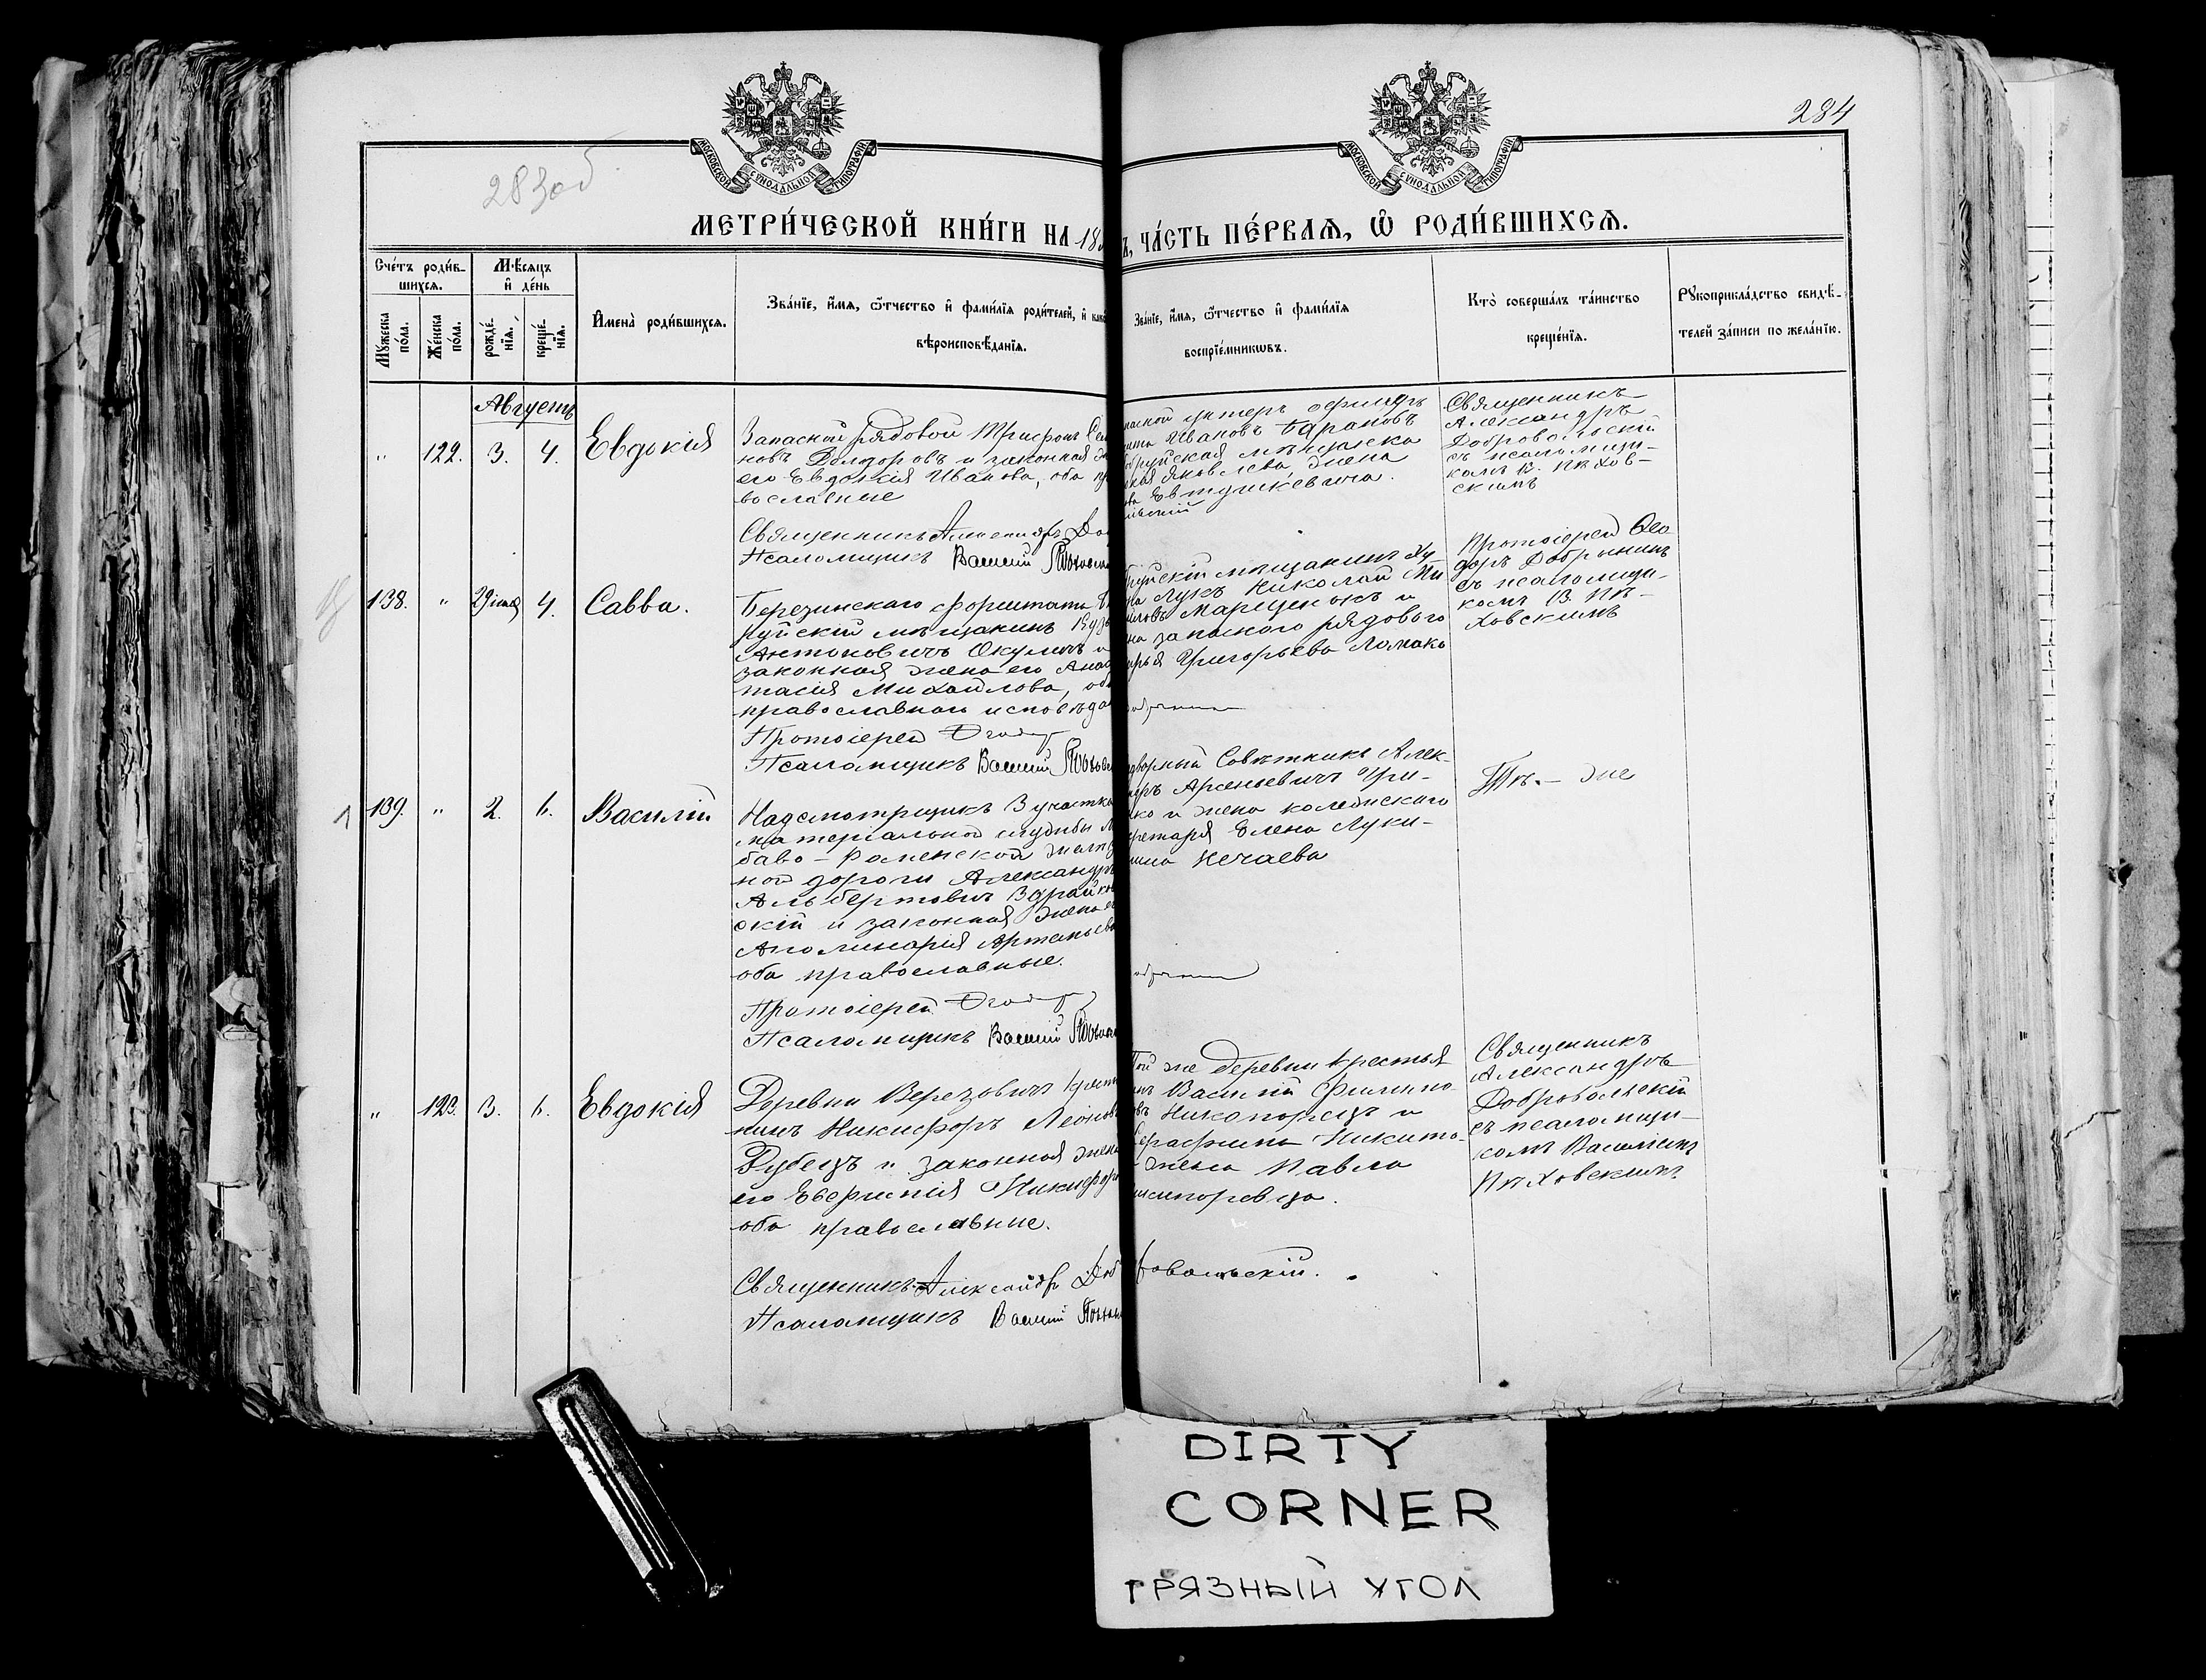 284
283 об
МОСКОВСКОЙ СѴНОДАЛЬНОЙ ТИПОГРАФІИ
МОСКОВСКОЙ СѴНОДАЛЬНОЙ ТИПОГРАФІИ
МЕТРИ́ЧЕСКОЙ КНИ́ГИ НА 18
Ъ, ЧА́СТЬ ПЕ́РВАѦ, Ѿ РОДИ́ВШИХСѦ.
Сче́тъ роди́в-
шихсѧ.
Мѣ́сѧцъ
и҆ де́нь
Мꙋ́жеска
по́ла.
Же́нска
по́ла.
рожде́-
нїѧ.
креще́-
нїѧ.
И҆мена̀ роди́вшихсѧ.
Зва́нїе, и҆́мѧ, ѻ҆́тчество и҆ фами́лїѧ роди́телей, и҆
вѣроисповѣ́данїѧ.
Зва́нїе, и҆́мѧ, ѻ҆́тчество и҆ фами́лїѧ
воспрїе́мникѡвъ.
Кто̀ соверша́лъ та́инство
креще́нїѧ.
Рꙋкоприкла́дство свидѣ́-
телей за́писи по жела́нїю.
Августъ
" 122. 3. 4. Евдокія
Запасной рядовой Трифонъ Сем
новъ и законная
его Евдокія Иванова, оба пр
вославные
Священникъ Александръ До
Псаломщикъ Василій
пасной унтеръ офицеръ
Ивановъ Барановъ
бруйская мѣщанка
Яковлева жена
Евтушкевича.
Священникъ
Александръ
Добровольскій
съ псаломщи-
комъ В. Пѣхов-
скимъ
138. " 29 4. Савва.
Березинскаго форштата
руйскій мѣщанинъ
Антоновичъ Окулич и
законная жена его Анас
тасія Михайлова, об
православнаго исповѣда
Протоіерей
Псаломщикъ Василій
руйскій мѣщанинъ Ху
Лукъ Николай Ми
Марценокъ и
запаснаго рядового
Григорьева Ломако
Протоіерей Ѳео
доръ Добрынинъ
съ псаломщи-
комъ В. Пѣ-
ховскимъ
139. " 2. 6. Василій
Надсмотрщикъ 3 участка
матеріальной службы Ли
баво-Роменской желѣз
ной дороги Александръ
Альбертовичъ
скій и законная жена
Аполинарія Артемьев
оба православные.
Протоіерей
Псаломщикъ Василій
дворный Совѣтникъ Алек-
Арсеньевичъ Гри-
и жена коллежскаго
кретаря Елена Луки-
Нечаева
Тѣ-же
" 123. 3. 6. Евдокія
Деревни Верезовичъ крест
нинъ Никифоръ Леонов
Дубецъ и законная жена
его Евфимія Никифор
оба православные.
Священникъ Александръ Доб
ровольскій.
Псаломщикъ Василій
Той же деревни крестья
Василій Филипо
и
Никито-
жена Павла
Священникъ
Александръ
Добровольскій
съ псаломщи-
комъ Василіемъ
Пѣховскимъ
DIRTY
CORNER
ГРЯЗНЫЙ УГОЛ